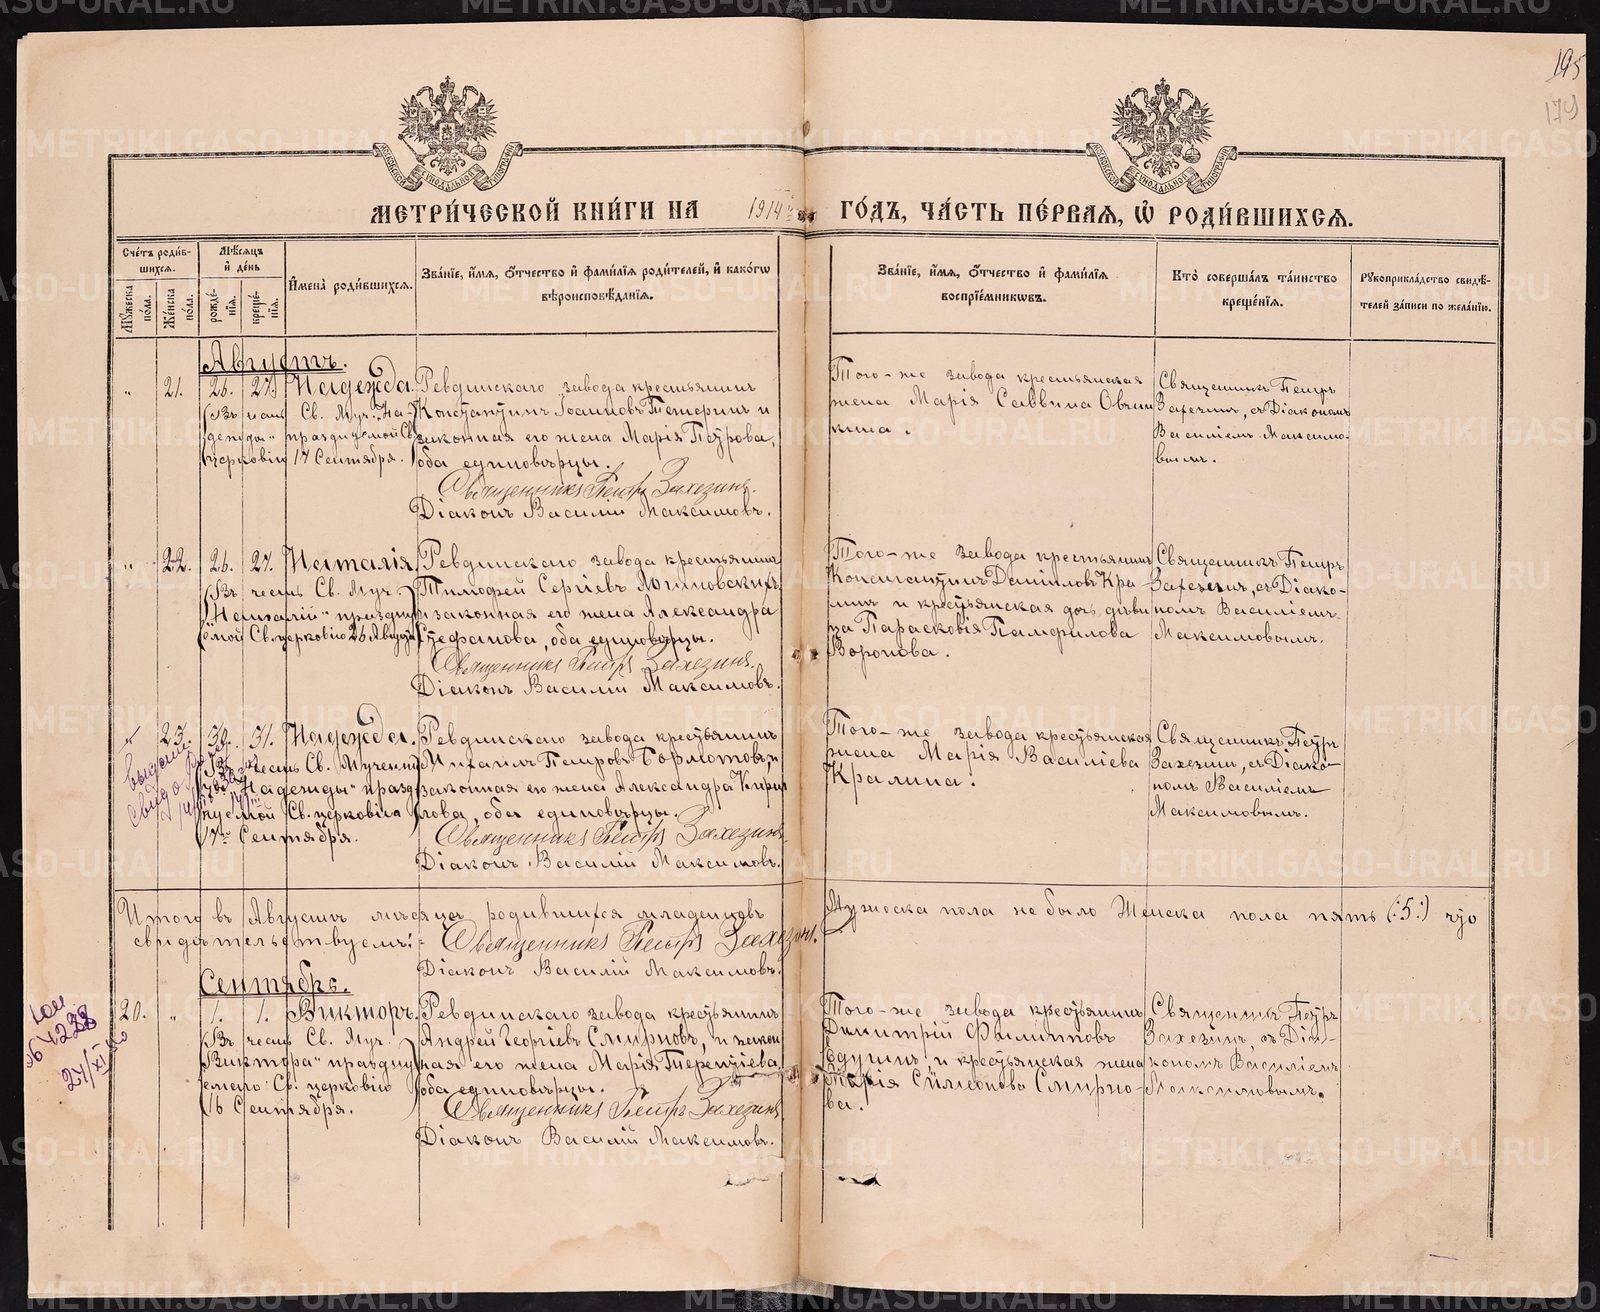 195
179
МЕТРИ́ЧЕСКОЙ КНИ́ГИ НА 1914й ГО́ДЪ, ЧА́СТЬ ПЕ́РВАЯ, Ѡ҆ РОДИ́ВШИХСЯ.
Сче́тъ роди́в-
шихся.
Му́жеска по́ла.
Же́нска по́ла.
Мѣ́сяцъ и҆ де́нь
рожде́-
нїя.
креще́-
нїя.
И҆мена̀ роди́вшихся.
Зва́нїе, и҆́мя, ѻ҆́тчество и҆ фами́лїя роди́телей, и҆ како́гѡ
вѣроисповѣ́данїя.
Зва́нїе, и҆́мя, ѻ҆́тчество и҆ фами́лїя
воспрїе́мникѡвъ.
Кто̀ соверша́лъ та́инство
креще́нїя.
Рꙋкоприкла́дство свидѣ́-
телей за́писи по жела́нїю.
Августъ.
" 21. 26. 27. Надежда.
(Въ честь Св. Муч. "На-
дежды" празднуемой Св.
церковію 17 Сентября.
Ревдинскаго завода крестьянинъ
Константинъ Іоанновъ Тетеринъ и
законная его жена Марія Петрова,
оба единовѣрцы.
Священникъ Петръ Захезинъ.
Діаконъ Василій Максимовъ.
Того-же завода крестьянская
жена Марія Саввина Овчин
кина.
Священникъ Петръ
Захезинъ, съ Діакономъ
Василіемъ Максимо-
вымъ.
" 22. 26. 27. Наталія.
(Въ честь Св. Муч.
"Наталій" праздну
емой Св. церковію 26 Августа
Ревдинскаго завода крестьянинъ
Тимофей Сергіевъ
и законная его жена Александра
Стефанова, оба единовѣрцы.
Священникъ Петръ Захезинъ.
Діаконъ Василій Максимовъ.
Того-же завода крестьянинъ
Константинъ Даніиловъ Кра
линъ и крестьянская дочь дѣви
ца Парасковія Памфилова
Воронова.
Священникъ Петръ
Захезинъ, съ Діако-
номъ Василіемъ
Максимовымъ.
23. 30. 31. Надежда.
Въ честь Св. Мучениц
"Надежды" празд
нуемой Св. церковію
17го Сентября.
Ревдинскаго завода крестьянинъ
Михаилъ Петровъ Бормотовъ, и
законная его жена Александра Кирил
лова, оба единовѣрцы.
Священникъ Петръ Захезинъ.
Діаконъ Василій Максимовъ.
Того-же завода крестьянская
жена Марія Василіева
Кралина.
Священникъ Петръ
Захезинъ, съ Діако-
номъ Василіемъ
Максимовымъ.
Итого въ Августѣ мѣсяцѣ родившихся младенцовъ Мужеска пола не было Женска пола пять (:5:) что
свидѣтельствуемъ: Священникъ Петръ Захезинъ.
Діаконъ Василій Максимовъ.
Сентябрь.
20. " 1. 1. Викторъ.
(Въ честь Св. Муч.
"Виктора" праздну
емаго Св. церковію
16 Сентября.
Ревдинскаго завода крестьянинъ
Андрей Георгіевъ Смирновъ, и закон
ная его жена Марія Терентіева
оба единовѣрцы.
Священникъ Петръ Захезинъ
Діаконъ Василій Максимовъ.
Того-же завода крестьянинъ
Димитрій Филипповъ
и крестьянская жена
Марія Симеонова Смирно-
ва.
Священникъ Петръ
Захезинъ, съ Діа-
кономъ Василіемъ
Максимовымъ.